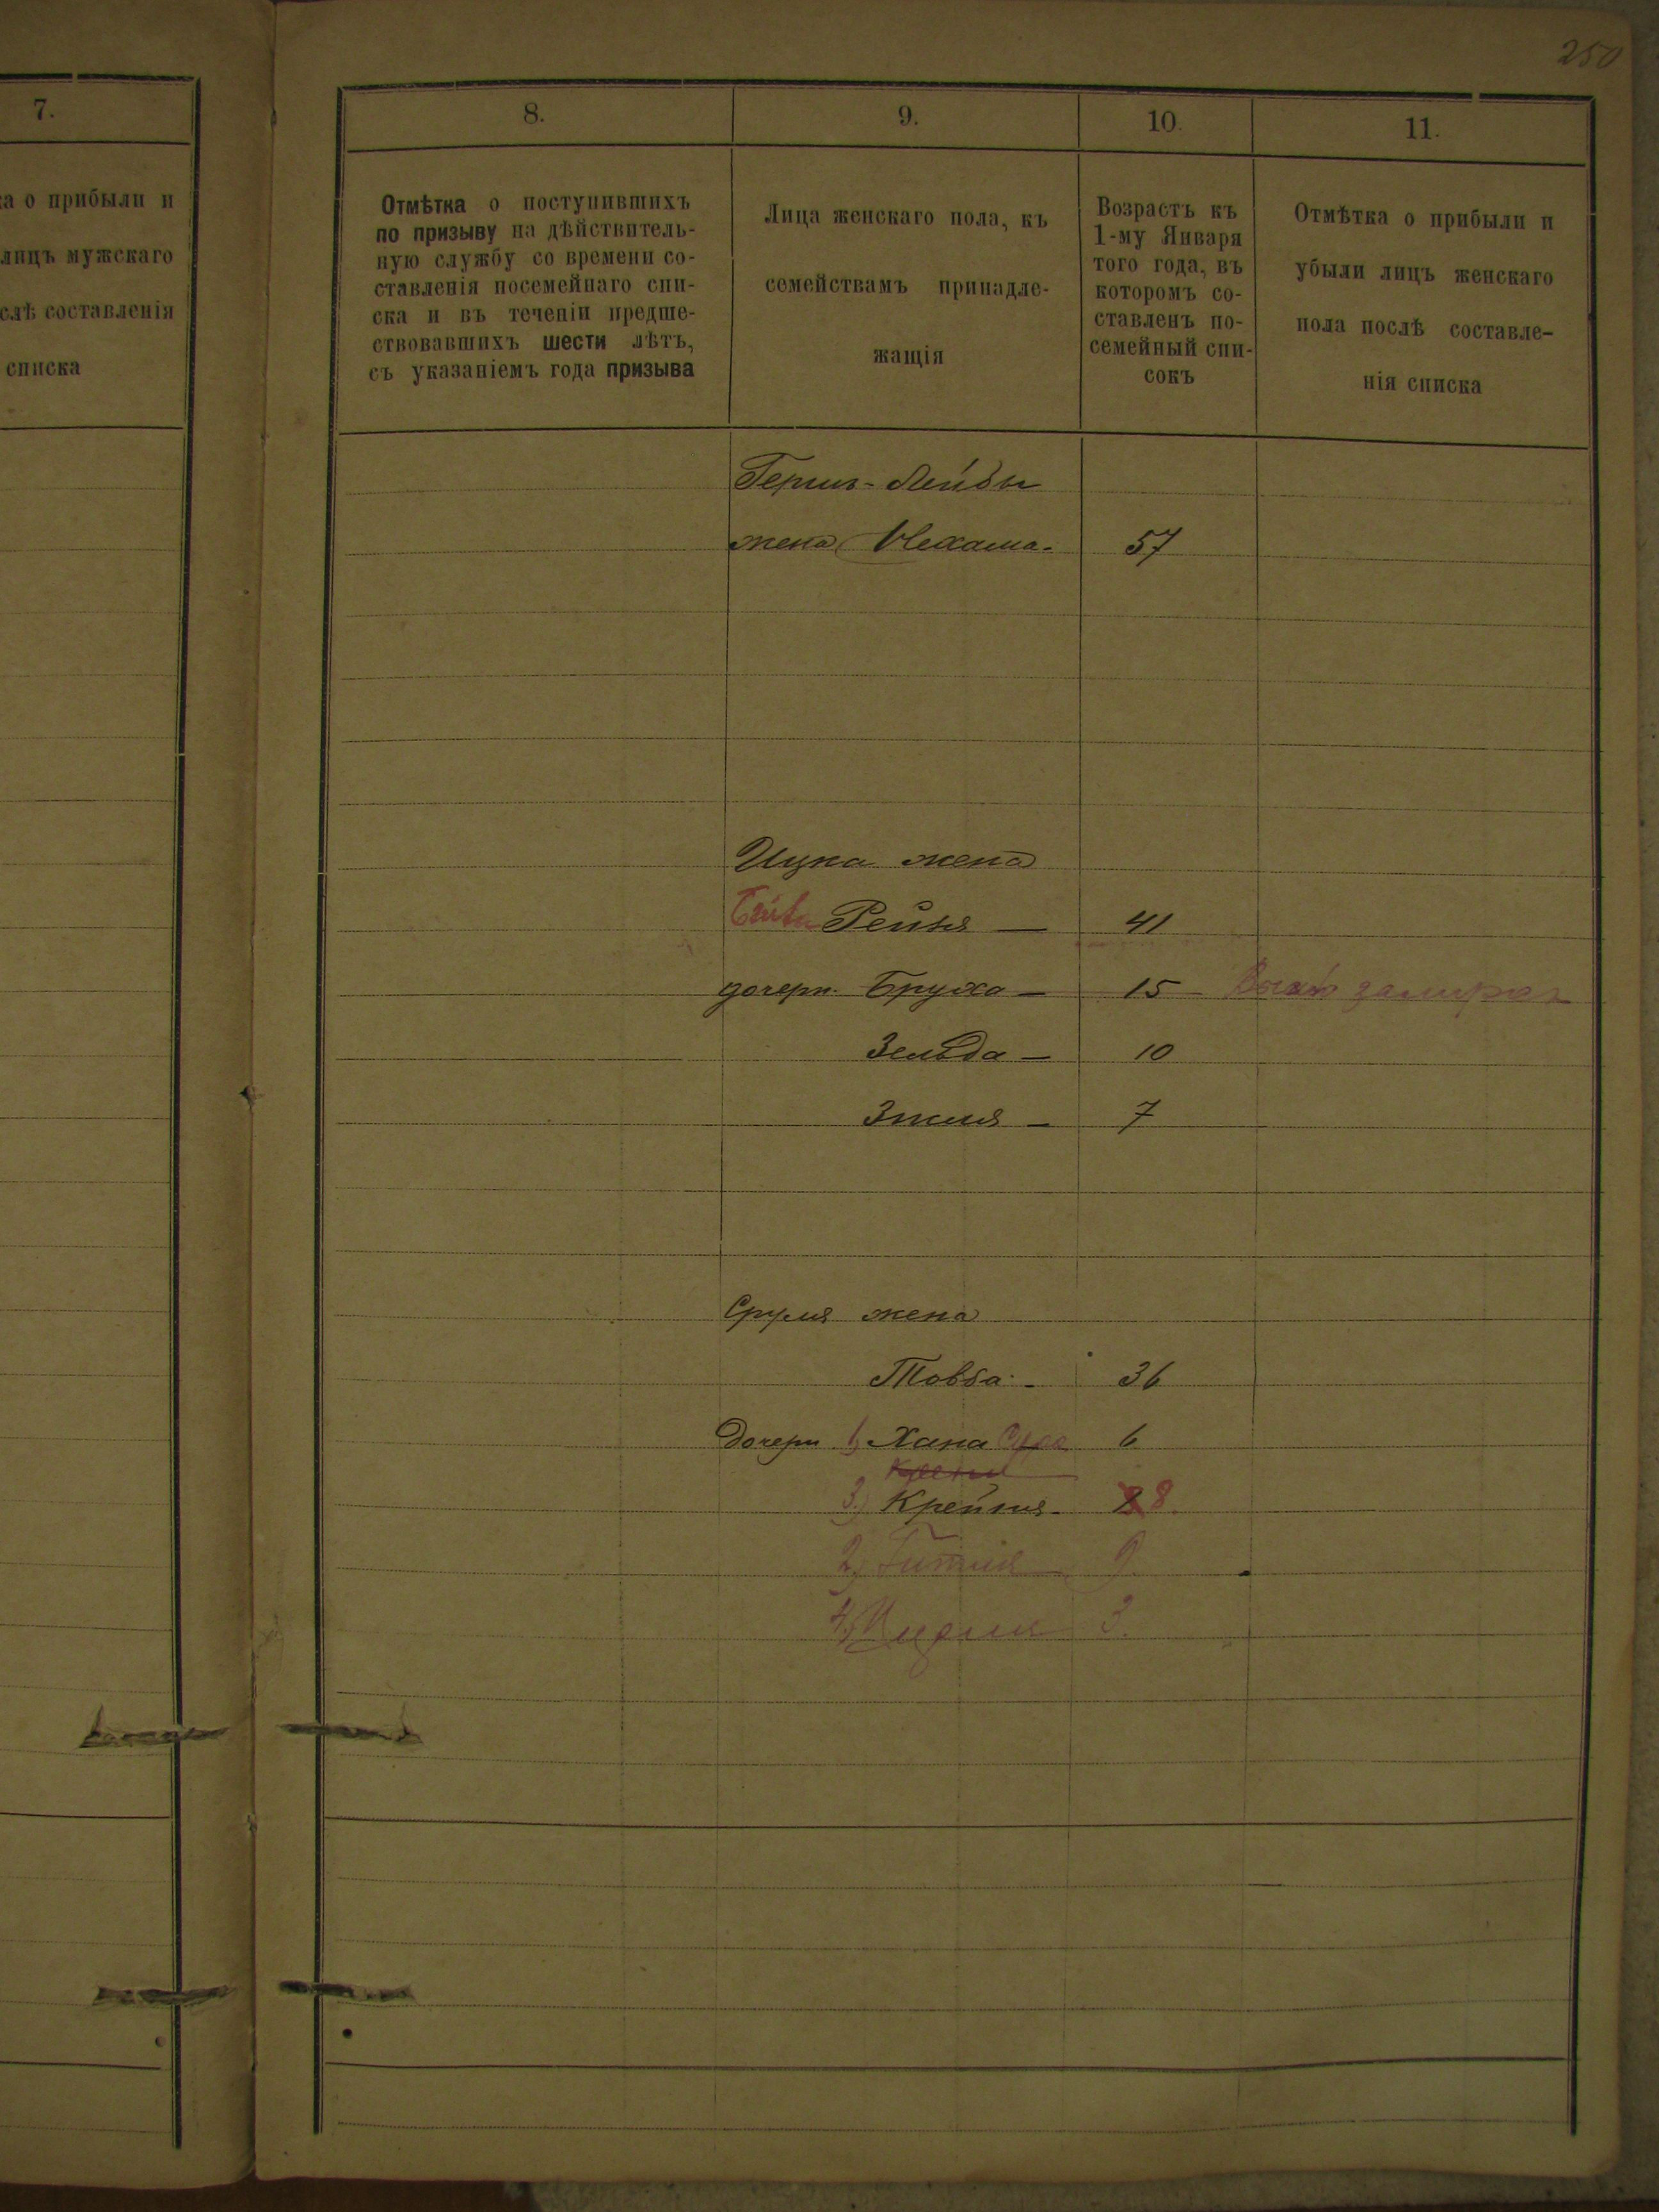 250
7.
а о прибыли и
лицъ мужскаго
слѣ составленія
списка
8.
9.
10.
11.
Отмѣтка о поступившихъ
по призыву на дѣйствитель-
ную службу со времени со-
ставленія посемейнаго спи-
ска и въ теченіи предше-
ствовавшихъ шести лѣтъ,
съ указаніемъ года призыва
Лица женскаго пола, къ
семействамъ принадле-
жащія
Возрастъ къ
1-му Января
того года, въ
которомъ со-
ставленъ по-
семейный спи-
сокъ
Отмѣтка о прибыли и
убыли лицъ женскаго
пола послѣ составле-
нія списка
Герш-Лейбы
жена Нехама - 57
Ицка жена
Рейзя — 41
дочери Бруха — 15
Зельда — 10
7
Сруля жена
Товба - 36
дочери 1) Хана Сура 6
3) Крейня - 8.
2) Гитля 9
4) 3.